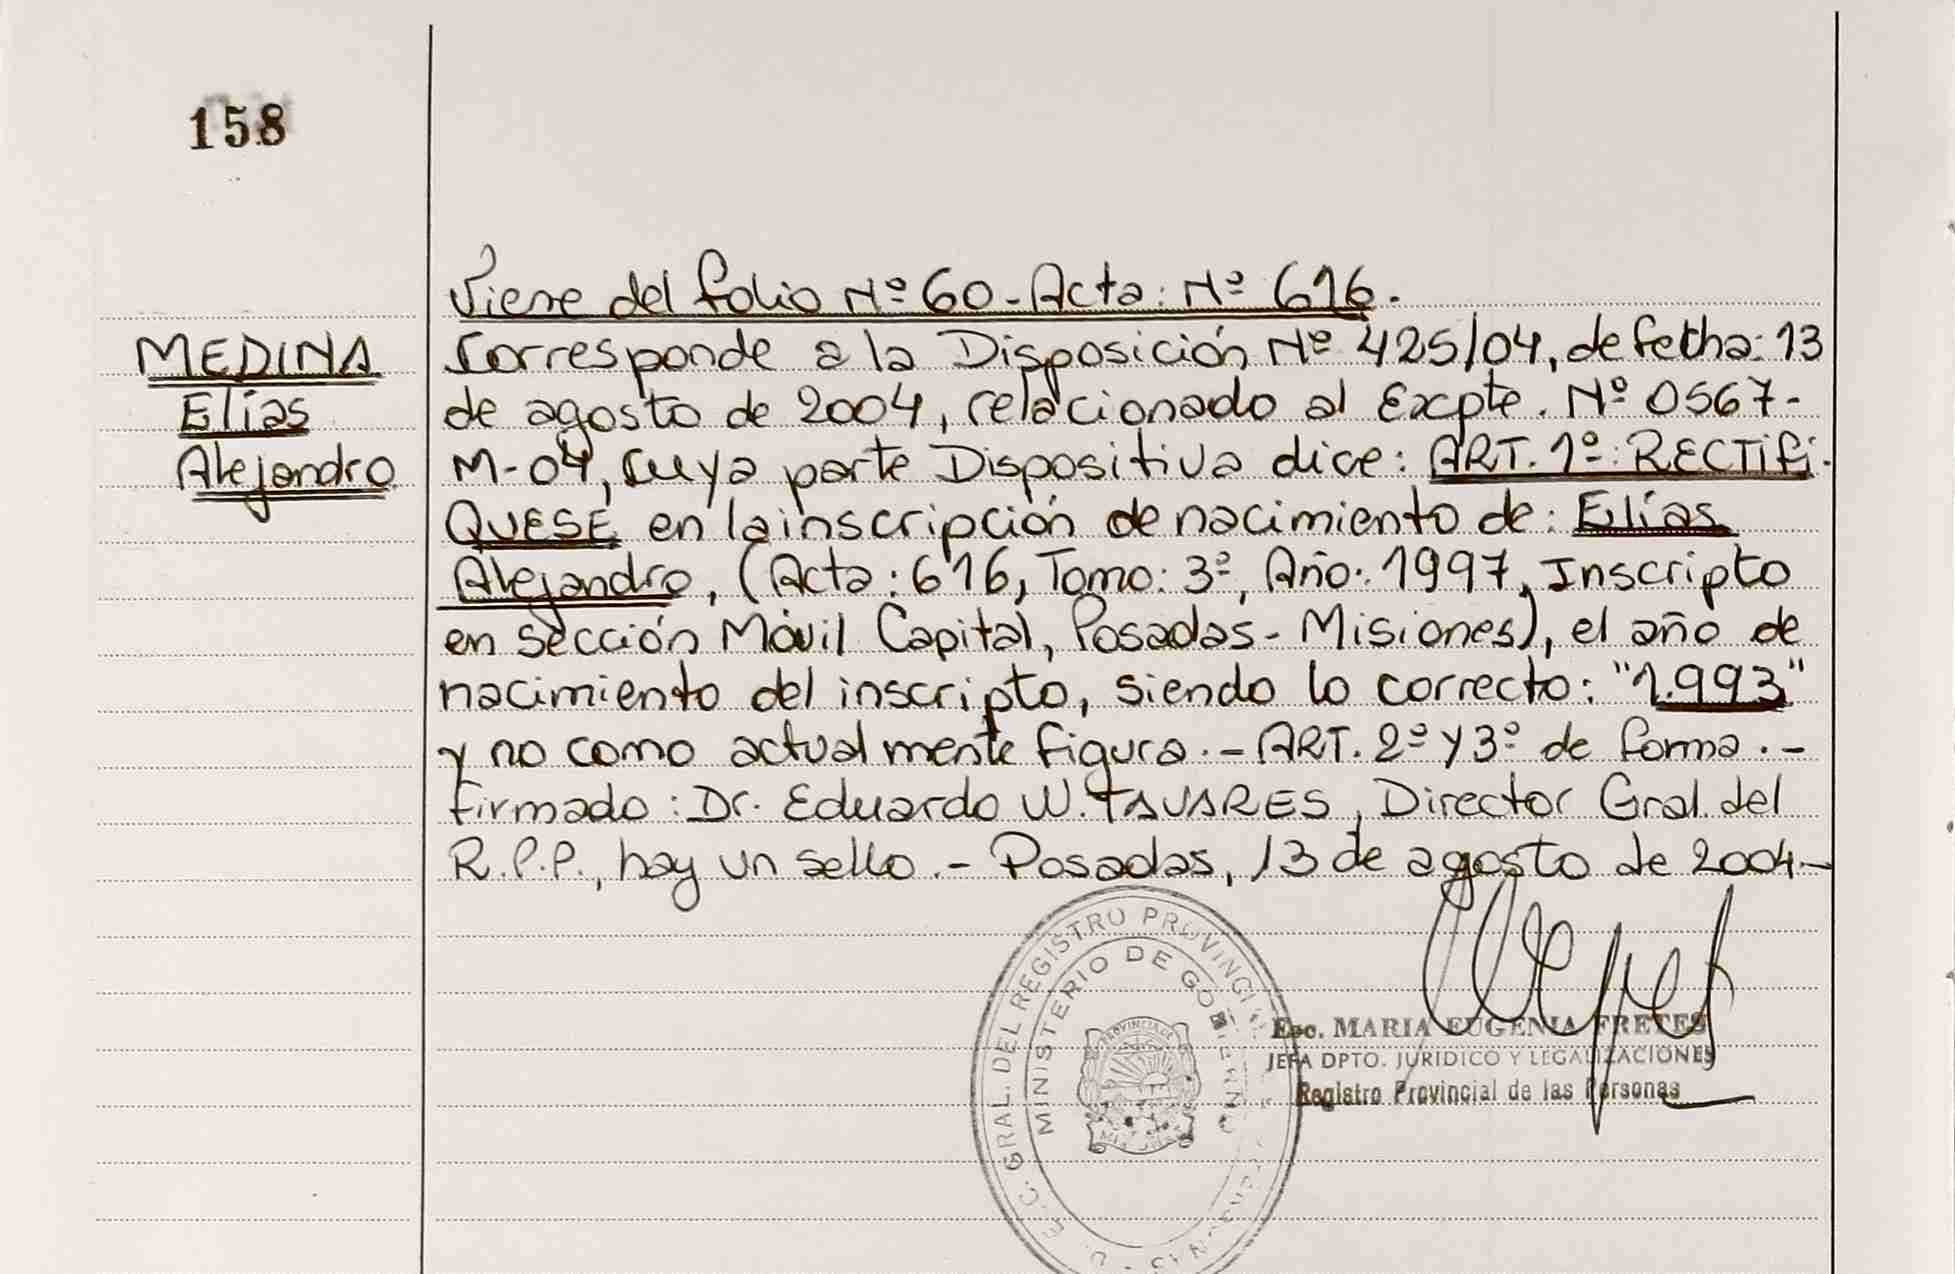 158
MEDINA
Elías
Alejandro
Viene del folio Nº 60 - Acta: Nº 616.
Corresponde a la Disposición Nº 425/04, de fecha: 13
de agosto de 2004, relacionado al Excpte. Nº 0567-
M-04, cuya parte Dispositiva dice: ART. 1º: RECTIFI-
QUESE en la inscripción de nacimiento de: Elías
Alejandro, (Acta: 616, Tomo: 3º, Año: 1997, Inscripto
en sección Móvil Capital, Posadas - Misiones), el año de
nacimiento del inscripto, siendo lo correcto: "1.993"
y no como actualmente figura.- ART. 2º y 3º de forma.-
Firmado: Dr. Eduardo W. TAVARES, Director Gral. del
R.P.P., hay un sello.- Posadas, 13 de agosto de 2004-
GRAL. DEL REGISTRO PROVINCI
MINISTERIO DE GOBIERNO
PROVINCIA DE
Esc. MARIA EUGENIA FRETES
JEFA DPTO. JURIDICO Y LEGALIZACIONES
Registro Provincial de las Personas